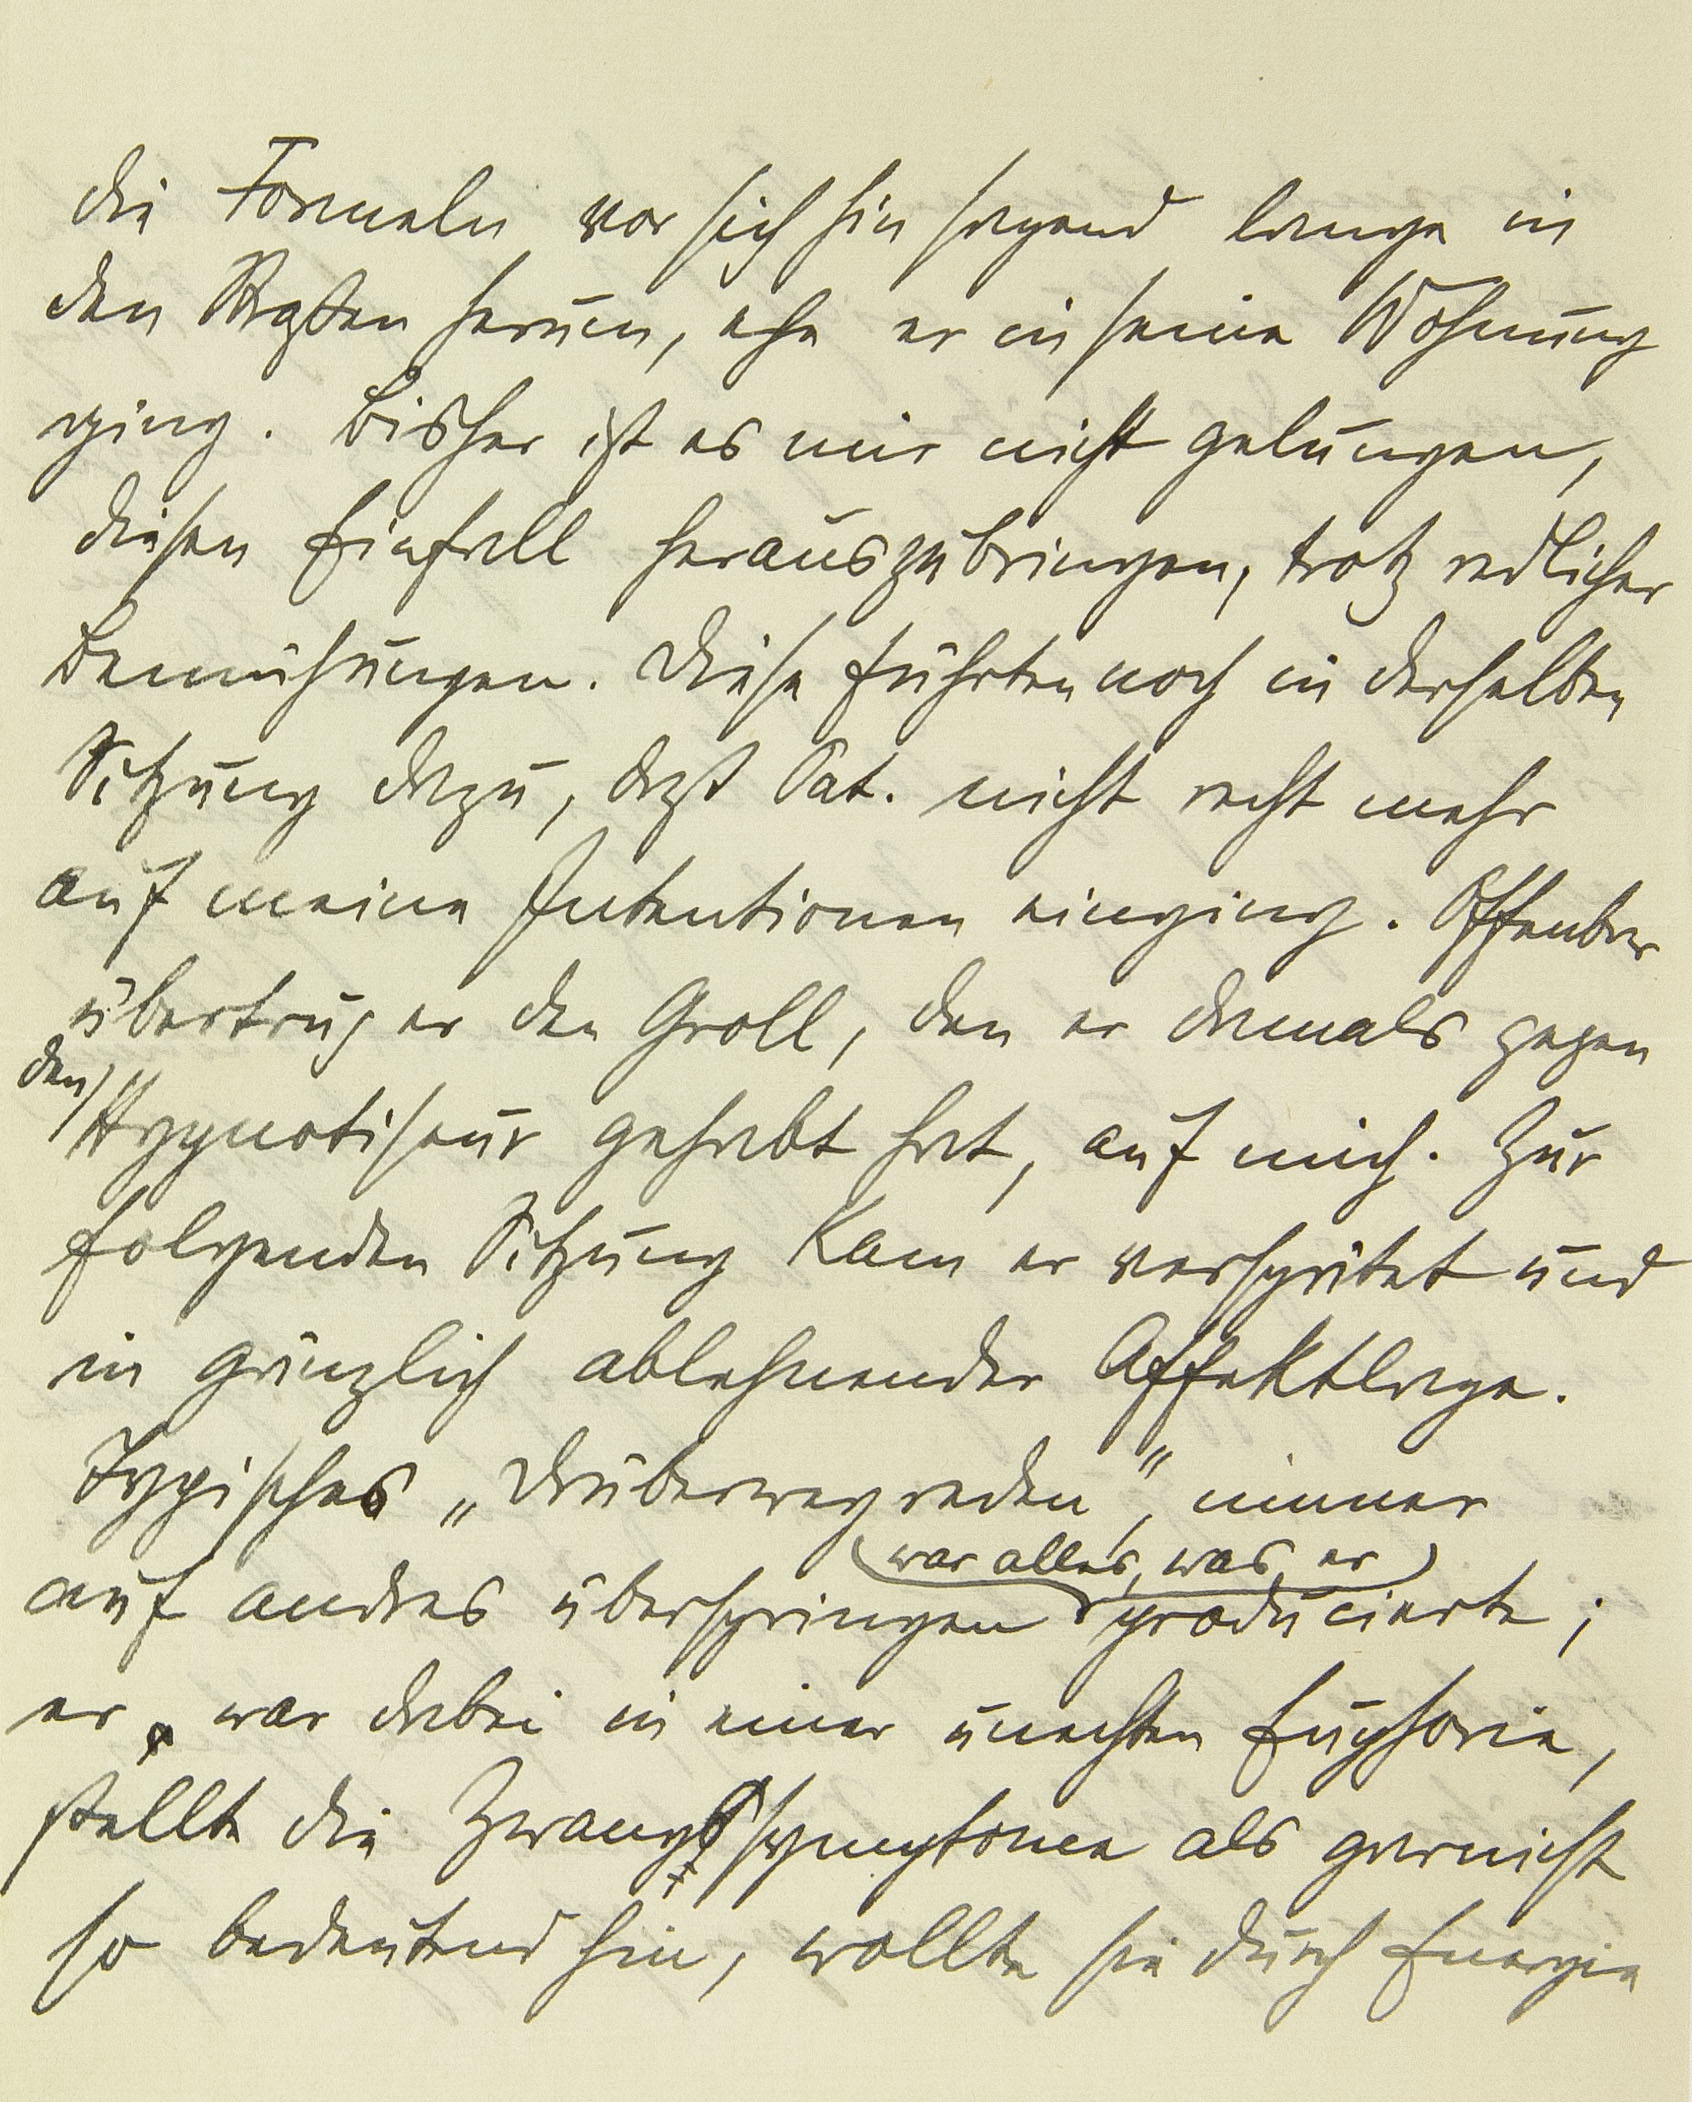 die Formeln vor sich hin sagend lange in
den Straßen herum, ehe er in seine Wohnung
ging. Bisher ist es mir nicht gelungen,
diesen Einfall herauszubringen, trotz redlicher
Bemühungen. Diese führten noch in derselben
Sitzung dazu, daß Pat. nicht recht mehr
auf meine Intentionen einging. Offenbar
übertrug er den Groll, den er damals gegen
den
Hypnotiseur gehabt hat, auf mich. Zur
folgenden Sitzung kam er verspätet und
in gänzlich ablehnender Affektlage.
Typisches „Drüberwegreden“, immer
war alles, was er
auf andres überspringen producierte;
er war dabei in einer unechten Euphorie,
stellte die Zwangssymptome als garnicht
so bedeutend hin, wollte sie durch Energie